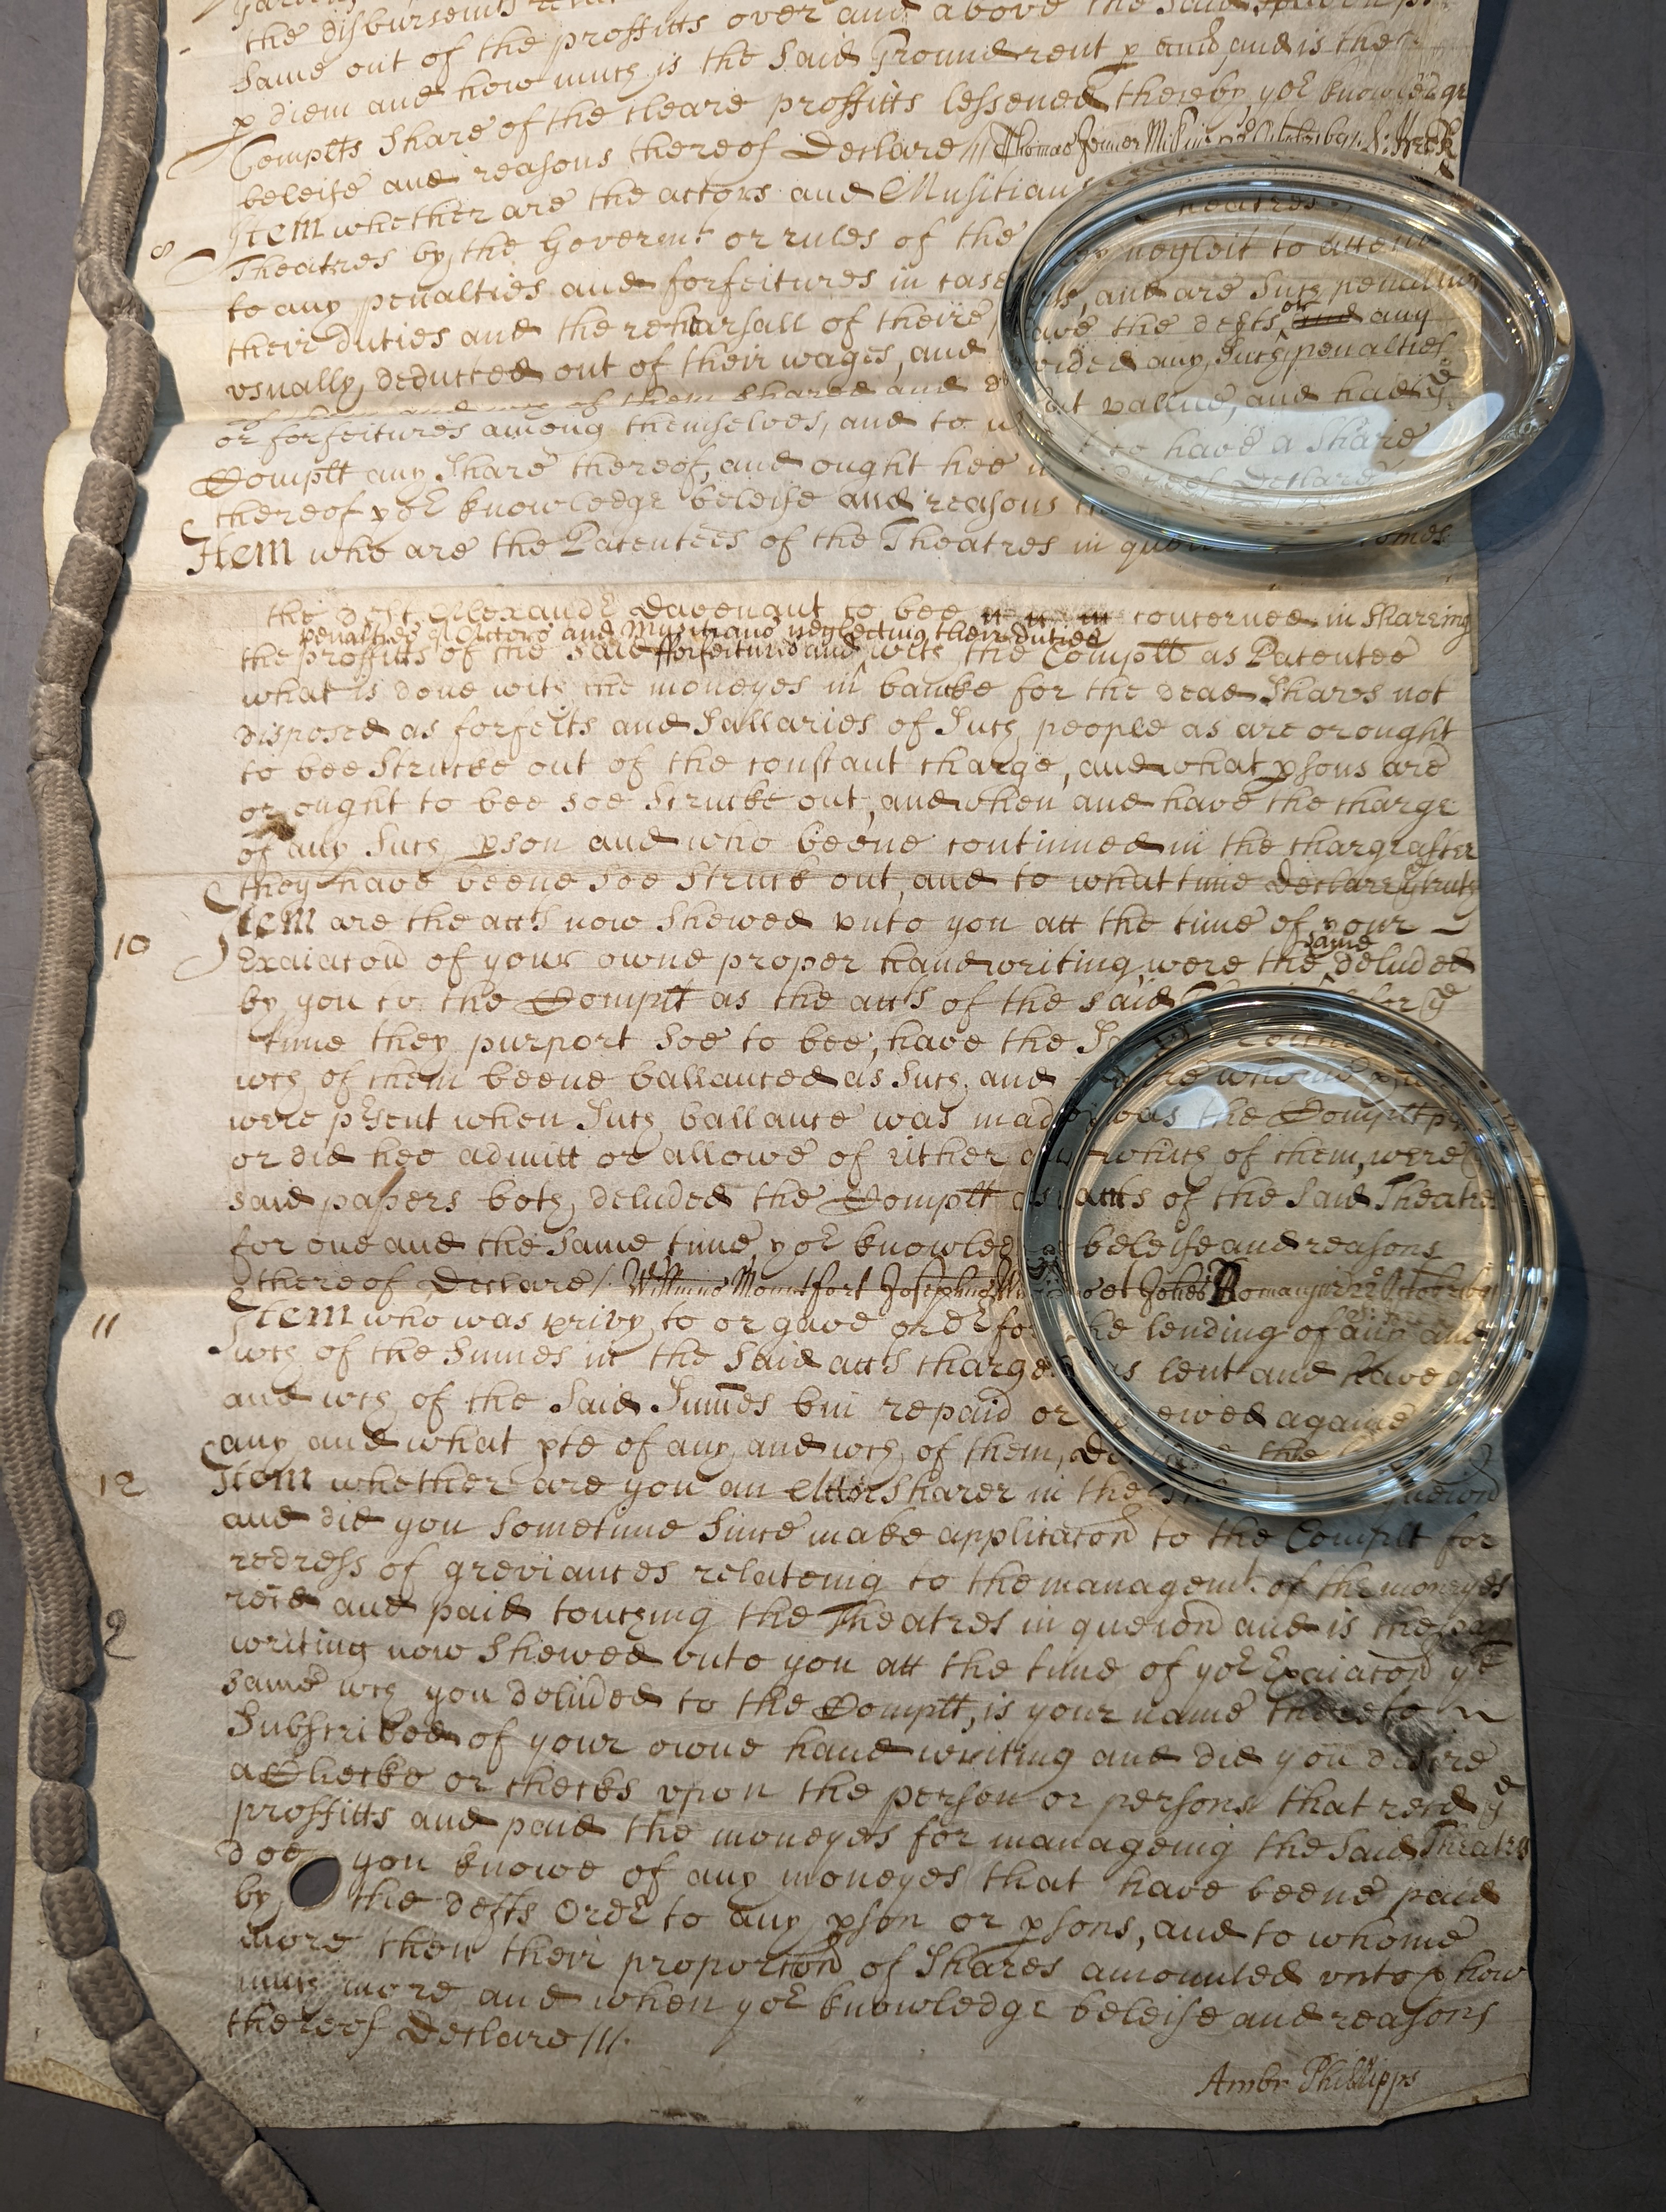 the disbursemts
same out of the proffitts over and above the said
p diem and how much is the said Ground rent p and is the
Complts share of the cleare proffitts lessened thereby yor knowledge
beleife and reasons thereof declare /// Thomas Jenner
8 Item whether are the actors and Musitians Theatres
Theatres by the Govermt or rules of the neglect to attend
to any penalties and forfeitures in case and are such penalties
their duties and the rehearsall of theire have the defts or and any
vsually deducted out of their wages, and any such penalties
of them and any of them shared and
or forfeitures among themselves, and to what vallue, and had ye
Complt any share thereof, and ought hee to have a share
thereof yor knowledge beleife and reasons thereof declare
Item who are the Patentees of the Theatres in comes
the deft Alexandr Davenant to bee concerned in shareing
penalties of Actors and Musitians neglecting their duties
the proffitts of the said forfeitures and with the Complt as Patentee
what is done with the moneyes in bancke for the dead shares not
disposed as forfeits and sallaries of such people as are or ought
to bee strucke out of the constant charge, and what psons are
or ought to bee soe strucke out, and when and have the charge
of any such pson and who beene continued in the charge after
they have beene soe struck out, and to what time declare ye truth
10 Item are the accts now shewed vnto you att the time of your
Exaiacon of your owne proper handwriting, were the same deluded
by you to the Complt as the accts of the said for ye
time they purport soe to bee, have the
wch of them beene ballanced as such, and
were psent when such ballance was made was the Complt
or did hee admitt or allowe of either or which of them, were
said papers both deluded the Complt as accts of the said Theatre
for one and the same time, yor knowledge beleife and reasons
thereof declare / William Mountfort Josephus
11 Item who was privy to or gave order for the lending of any and
wch of the summes in the said accts charged as lent and have
and wch of the said summes bin repaid or againe
any and what pte of any and wch of them, the
12 Item whether are you an Actor sharer in the
and did you sometime since make applicacon to the Complt for
redress of greviances relateing to the managemt of the moneyes
recd and paid touching the Theatres in queion and is the
writing now shewed vnto you att the time of yor Exaiacon ye
2
same wch you deluded to the Complt, is your name thereto
subscribed of your owne hand writing and did you desire
a Checke or checks vpon the person or persons that recd ye
proffitts and paid the moneyes for manageing the said Theatres
doe you knowe of any moneyes that have beene paid
by the defts Order to any pson or psons, and to whome
more then their proporcon of shares amounted vnto how
much more and when yor knowledge beleife and reasons
thereof declare ///.
Ambr Phillipps